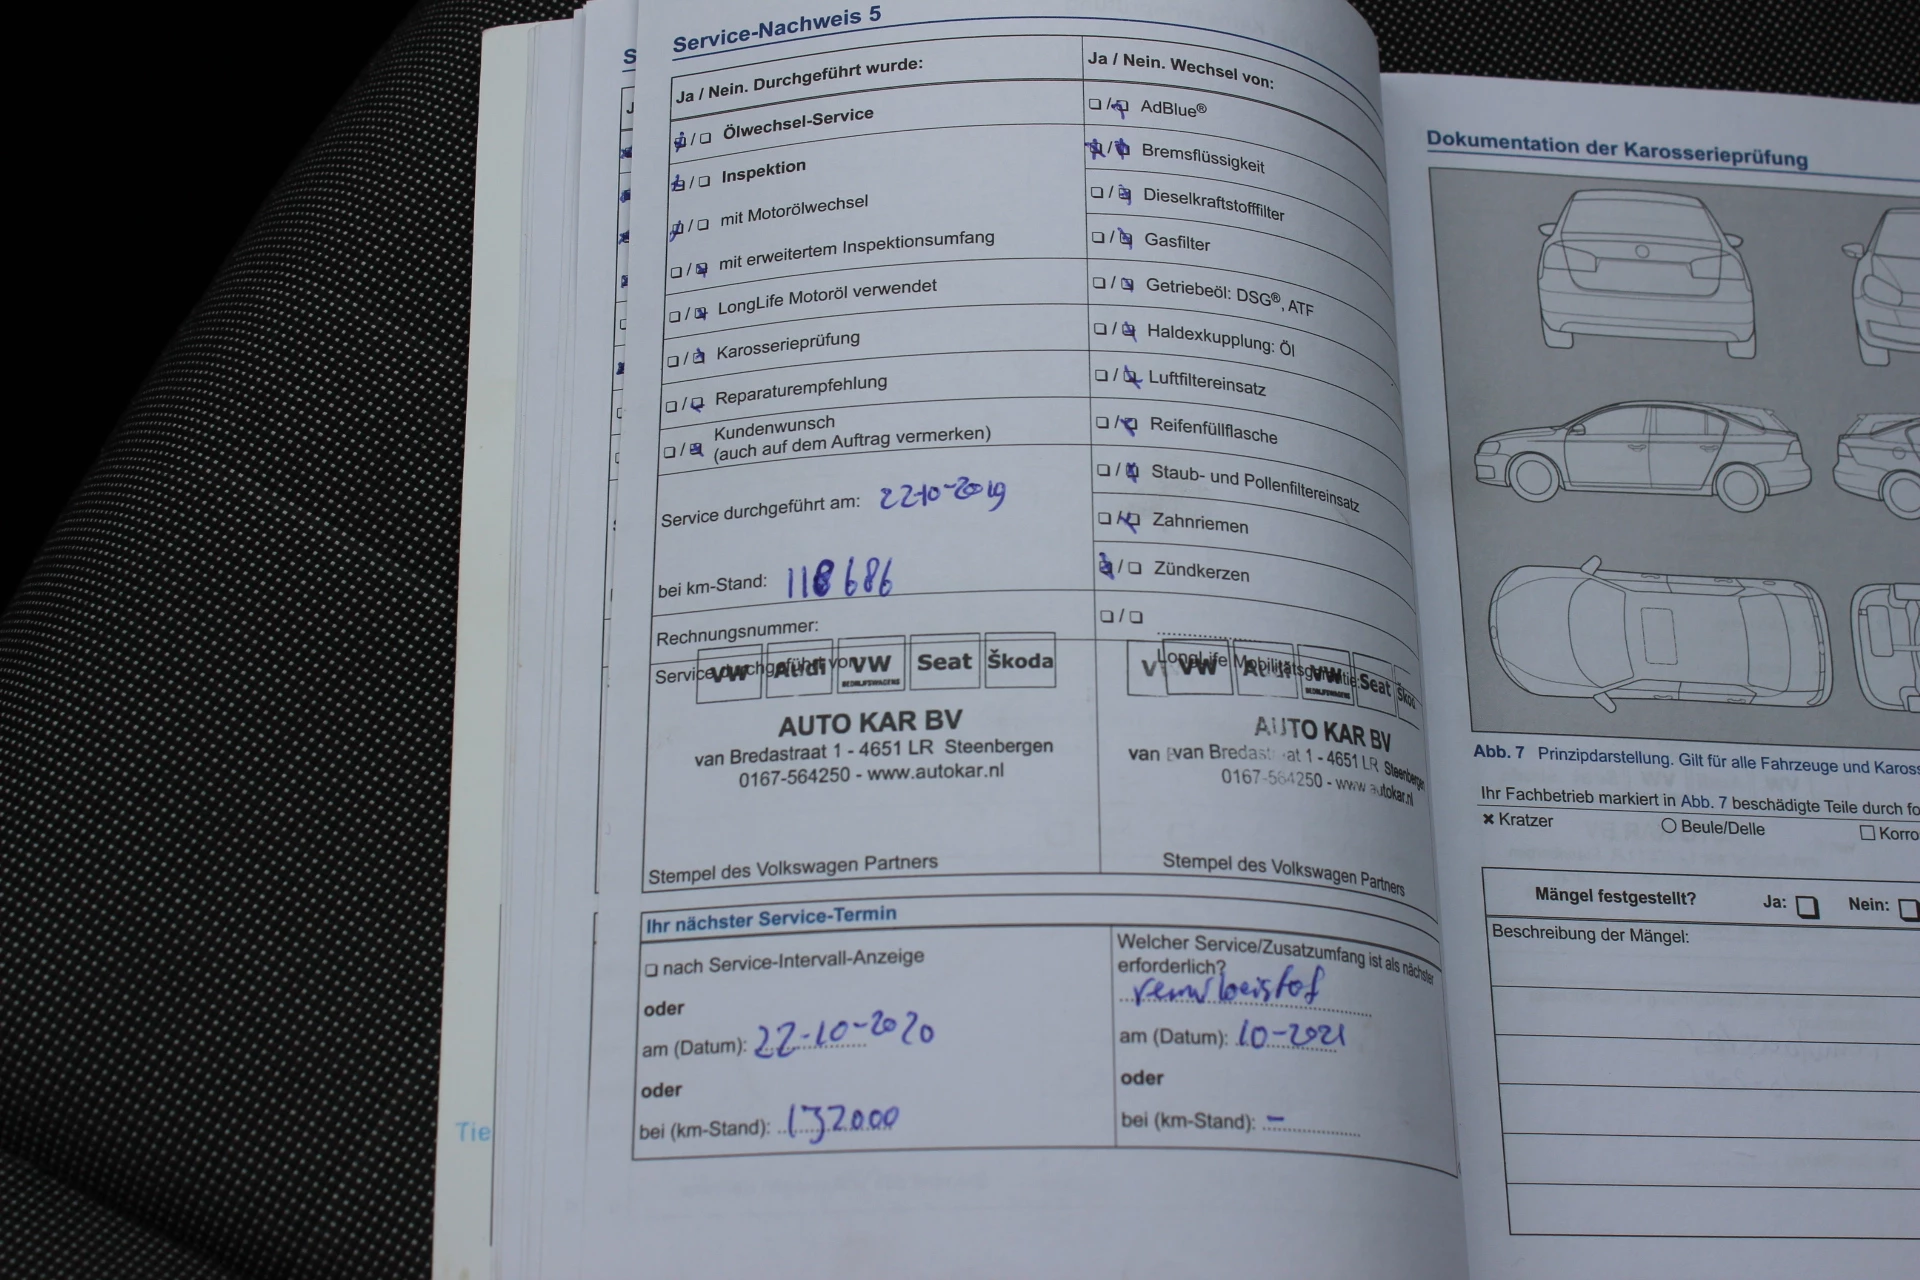 Service-Nachweis 5
Ja / Nein. Durchgeführt wurde:
Ölwechsel-Service
Inspektion
mit Motorölwechsel
mit erweitertem Inspektionsumfang
LongLife Motoröl verwendet
Karosserieprüfung
Reparaturempfehlung
Kundenwunsch
(auch auf dem Auftrag vermerken)
Service durchgeführt am: 22-10-2019
bei km-Stand: 118686
Rechnungsnummer:
Service durchgeführt von:
VW Audi VW Seat Škoda
BEDRIJFSWAGENS
AUTO KAR BV
van Bredastraat 1 - 4651 LR Steenbergen
0167-564250 - www.autokar.nl
Stempel des Volkswagen Partners
Ja / Nein. Wechsel von:
AdBlue®
Bremsflüssigkeit
Dieselkraftstofffilter
Gasfilter
Getriebeöl: DSG®, ATF
Haldexkupplung: Öl
Luftfiltereinsatz
Reifenfüllflasche
Staub- und Pollenfiltereinsatz
Zahnriemen
Zündkerzen
LongLife Mobilitätsgarantie:
VW Audi VW Seat Škoda
BEDRIJFSWAGENS
AUTO KAR BV
van van Bredastraat 1 - 4651 LR Steenbergen
0167-564250 - www.autokar.nl
Stempel des Volkswagen Partners
Ihr nächster Service-Termin
nach Service-Intervall-Anzeige
oder
am (Datum): 22-10-2020
oder
bei (km-Stand): 132000
Welcher Service/Zusatzumfang ist als nächster
erforderlich?
remvloeistof
am (Datum): 10-2021
oder
bei (km-Stand): -
Tie
Dokumentation der Karosserieprüfung
Abb. 7 Prinzipdarstellung. Gilt für alle Fahrzeuge und Kaross
Ihr Fachbetrieb markiert in Abb. 7 beschädigte Teile durch fo
Kratzer Beule/Delle Korro
Mängel festgestellt? Ja: Nein:
Beschreibung der Mängel: